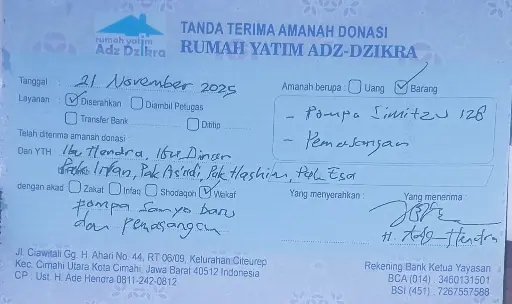 rumah yatim
Adz Dzikra
TANDA TERIMA AMANAH DONASI
RUMAH YATIM ADZ-DZIKRA
Tanggal : 21 November 2025
Amanah berupa : Uang Barang
Layanan : Diserahkan Diambil Petugas
Transfer Bank Dititip
- Pompa Simitzu 128
- Pemasangan
Telah diterima amanah donasi
Dari YTH Ibu Hendra, Ibu
Pak Irfan, Pak Asndi, Pak Hashim, Pak Esa
dengan akad : Zakat Infaq Shodaqoh Wakaf
pompa Sanyo baru
dan pemasangan
Yang menyerahkan :
Yang menerima
H. Ade Hendra
Jl. Ciawitali Gg. H. Ahari No. 44, RT 06/09, Kelurahan Citeureup
Kec. Cimahi Utara Kota Cimahi, Jawa Barat 40512 Indonesia
CP : Ust. H. Ade Hendra 0811-242-0812
Rekening Bank Ketua Yayasan
BCA (014) : 3460131501
BSI (451) : 7267557588